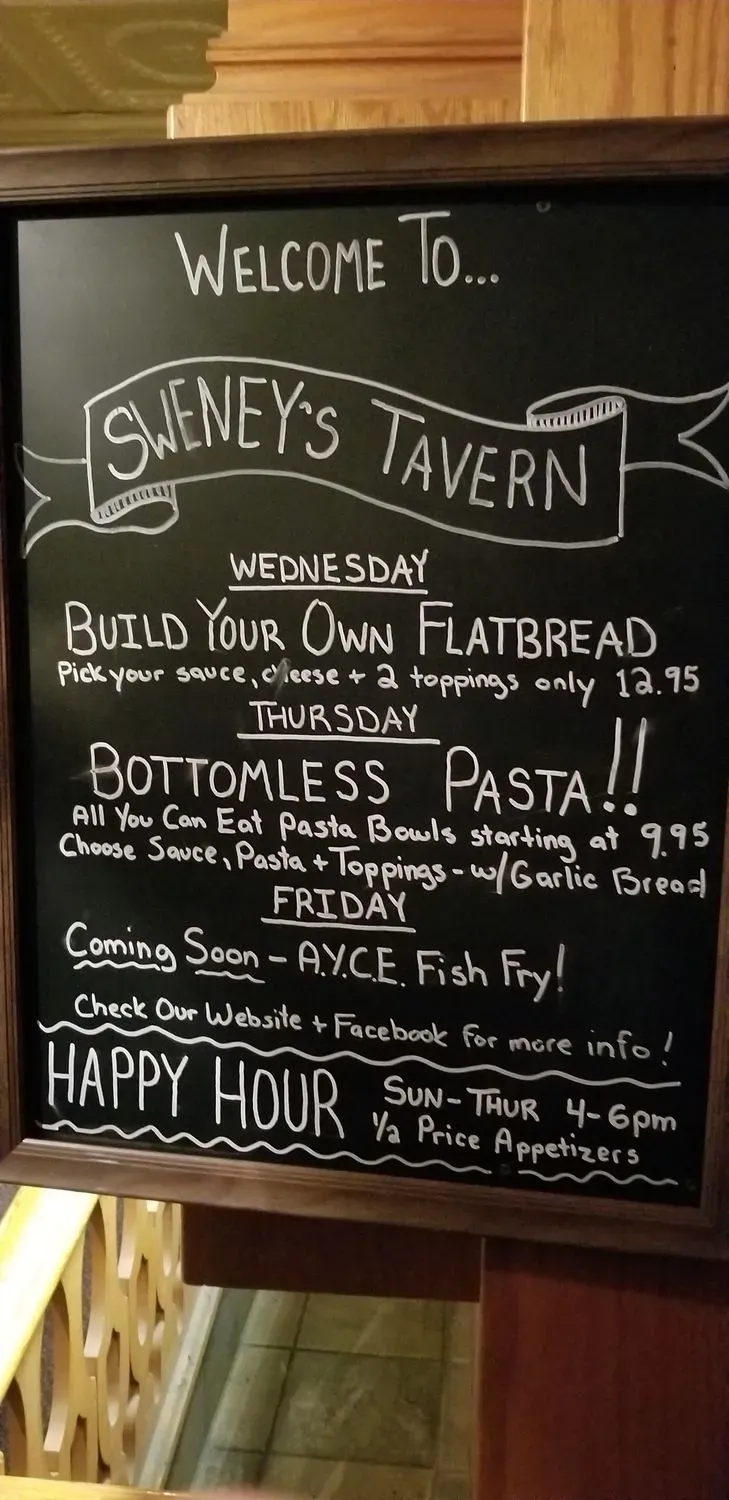 WELCOME TO...
SWENEY'S TAVERN
WEDNESDAY
BUILD YOUR OWN FLATBREAD
Pick your sauce, cheese + 2 toppings only 12.95
THURSDAY
BOTTOMLESS PASTA!!
All You Can Eat Pasta Bowls starting at 9.95
Choose Sauce, Pasta + Toppings - w/Garlic Bread
FRIDAY
Coming Soon - A.Y.C.E. Fish Fry!
Check Our Website + Facebook for more info!
HAPPY HOUR SUN-THUR 4-6pm
1/2 Price Appetizers